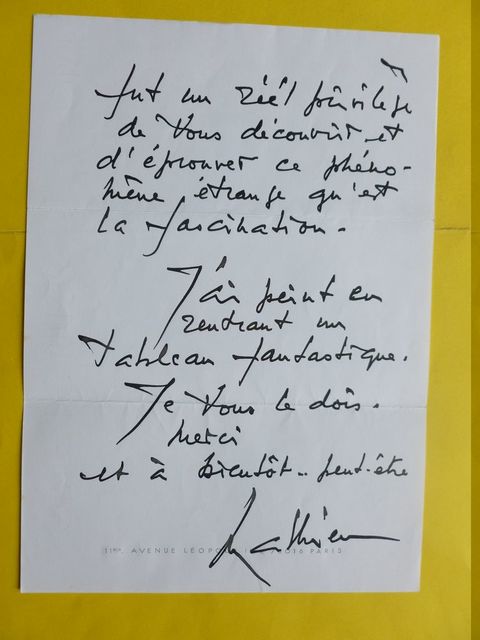 fut un réel privilège
de Vous découvrir et
d'éprouver ce phéno-
mène étrange qu'est
la fascination.
J'ai peint en
rentrant un
Tableau fantastique.
Je Vous le dois.
Merci
et à bientôt.. peut-être
Mathieu
11BIS, AVENUE LÉOPOLD II 75016 PARIS